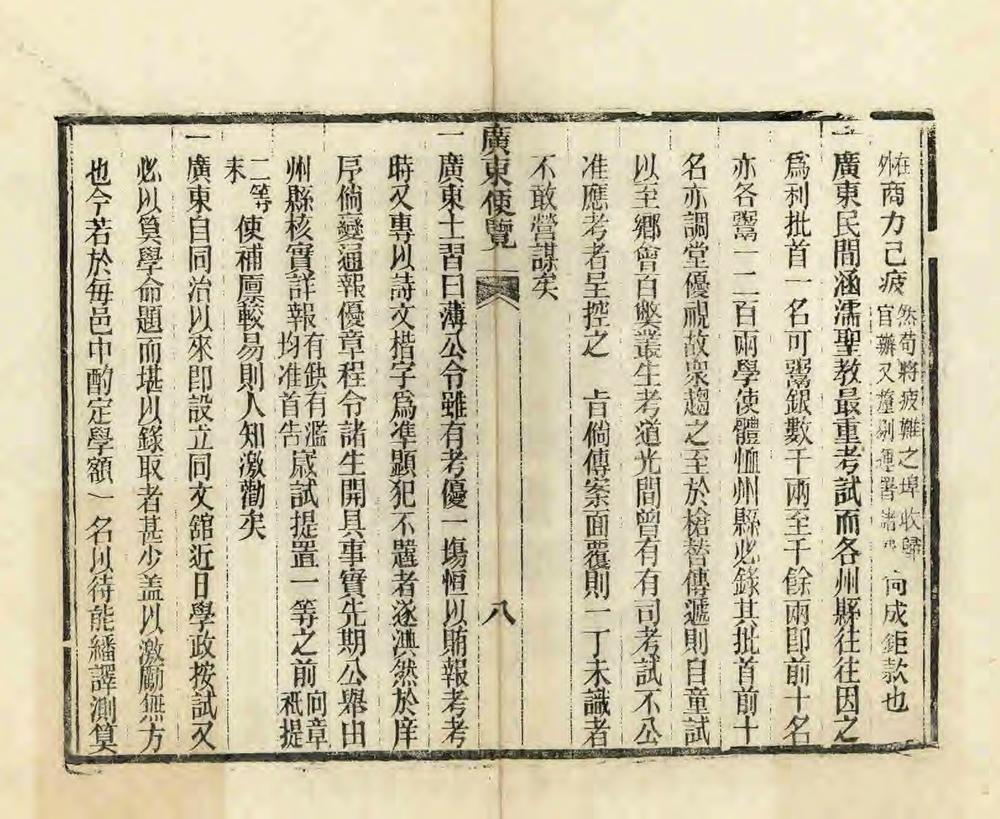 在外商力已疲然苟將疲難之埠收歸官辦又釐剔運署諸 向成鉅款也
一廣東民間涵濡聖教最重考試而各州縣往往因之
爲利批首一名可鬻銀數千兩至千餘兩即前十名
亦各鬻一二百兩學使體恤州縣必錄其批首前十
名亦調堂優視故衆趨之至於槍替傳遞則自童試
以至鄉會百獘叢生考道光間曾有有司考試不公
准應考者呈控之　旨倘傳案面覆則一丁未識者
不敢營謀矣
廣東便覽
八
一廣東士習日薄公令雖有考優一塲恒以賄報考考
時又專以詩文楷字爲準顯犯不韙者遂澳然於庠
序倘變通報優章程令諸生開具事實先期公舉由
州縣核實詳報有鈌有濫均准首告歲試提置一等之前向章祇提
二等末使補廩較易則人知激勸矣
一廣東自同治以來即設立同文舘近日學政按試又
必以算學命題而堪以錄取者甚少盖以激勵無方
也今若於每邑中酌定學額一名以待能繙譯測算